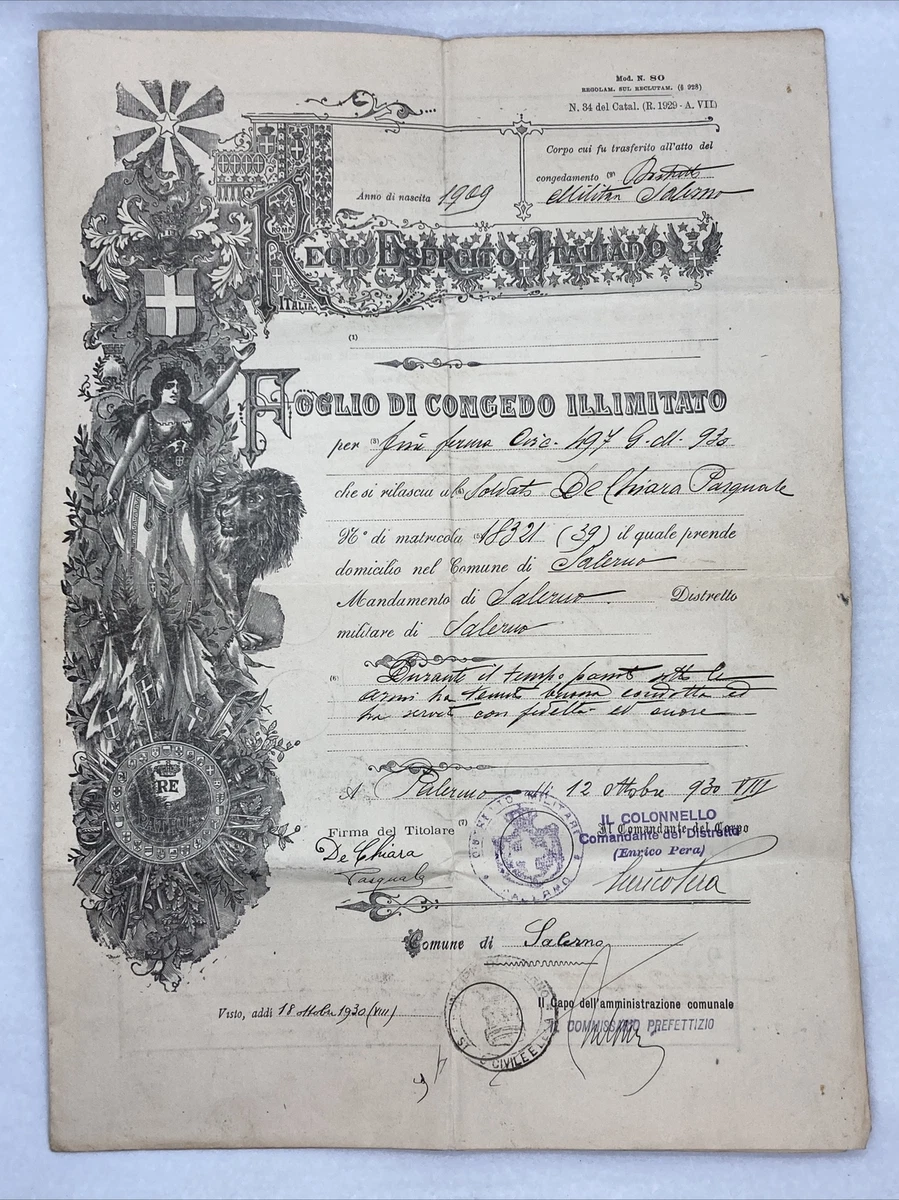 Mod. N. 80
REGOLAM. SUL RECLUTAM. (§ 928)
N. 34 del Catal. (R. 1929 - A. VII)
Corpo cui fu trasferito all'atto del
congedamento Distretto
Militare Salerno
Anno di nascita 1909
ROMA
REGIO ESERCITO ITALIANO
ITALIA
(1)
FOGLIO DI CONGEDO ILLIMITATO
per (3) fine ferma Circ. 497 G. M. 930
che si rilascia al Soldato De Chiara Pasquale
N° di matricola 18321 (39) il quale prende
domicilio nel Comune di Salerno
Mandamento di Salerno Distretto
militare di Salerno
(6) Durante il tempo passato sotto le
armi ha tenuto buona condotta ed
ha servito con fedeltà ed onore
A Palermo lì 12 ottobre 930 VIII
Firma del Titolare (7)
De Chiara
Pasquale
DISTRETTO MILITARE
Il Comandante del Corpo
IL COLONNELLO
Comandante del Distretto
(Enrico Pera)
Enrico Pera
RE
Comune di Salerno
Visto, addì 18 ottobre 1930 (VIII)
Il Capo dell'amministrazione comunale
IL COMMISSARIO PREFETTIZIO
CIVILE E LEVA